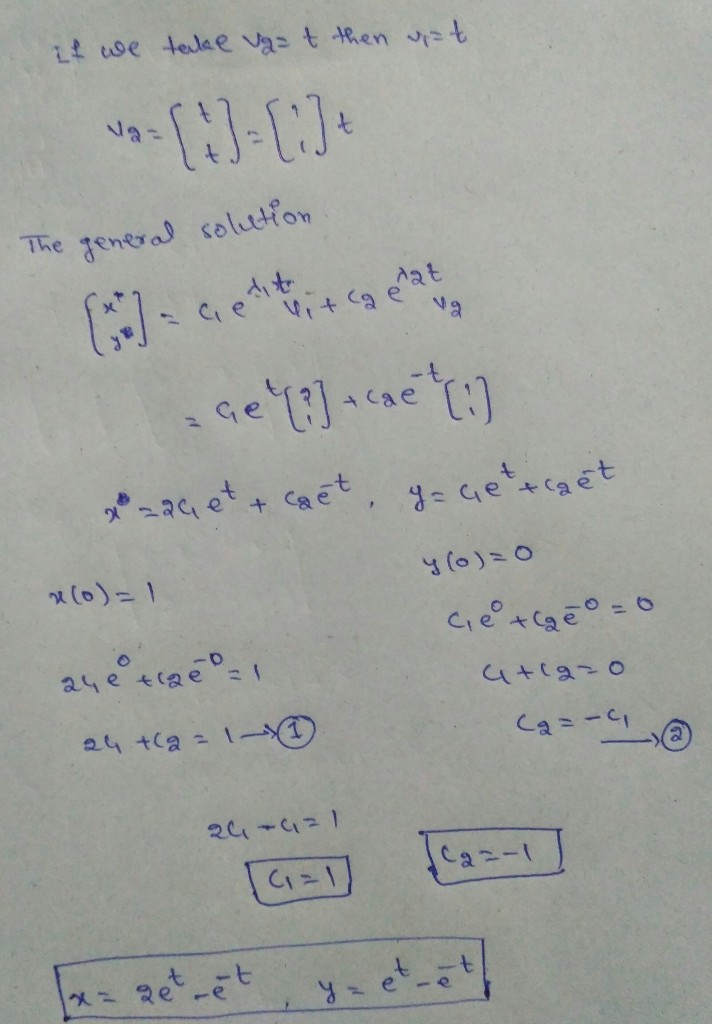 if we take v2 = t then v1 = t
v2 = [t t] = [1 1] t
The general solution
[x* y*] = c1 e^λ1t v1 + c2 e^λ2t v2
= c1 e^t [2 1] + c2 e^-t [1 1]
x = 2c1 e^t + c2 e^-t , y = c1 e^t + c2 e^-t
x(0) = 1
2c1 e^0 + c2 e^-0 = 1
2c1 + c2 = 1 → ①
y(0) = 0
c1 e^0 + c2 e^-0 = 0
c1 + c2 = 0
c2 = -c1 → ②
2c1 - c1 = 1
c1 = 1
c2 = -1
x = 2e^t - e^-t , y = e^t - e^-t